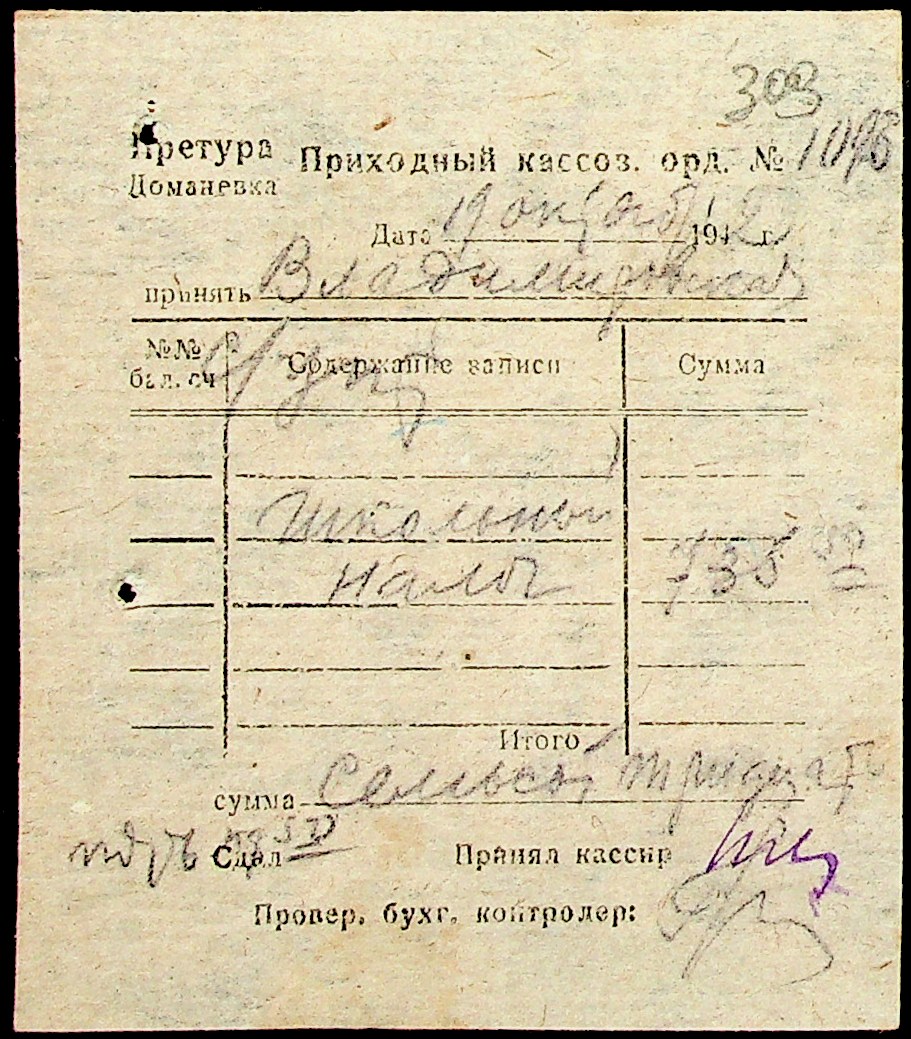 303
Претура Приходный кассов. орд. № 1096
Доманевка
Дата 19 октяб 1942 г.
принять Владимировка
№№ бал. сч Содержание записи Сумма
Школьны
налог 735 50
Итого
сумма Семьсот тридцать
пять 50 Сдал Принял кассир
Провер. бухг. контролер: